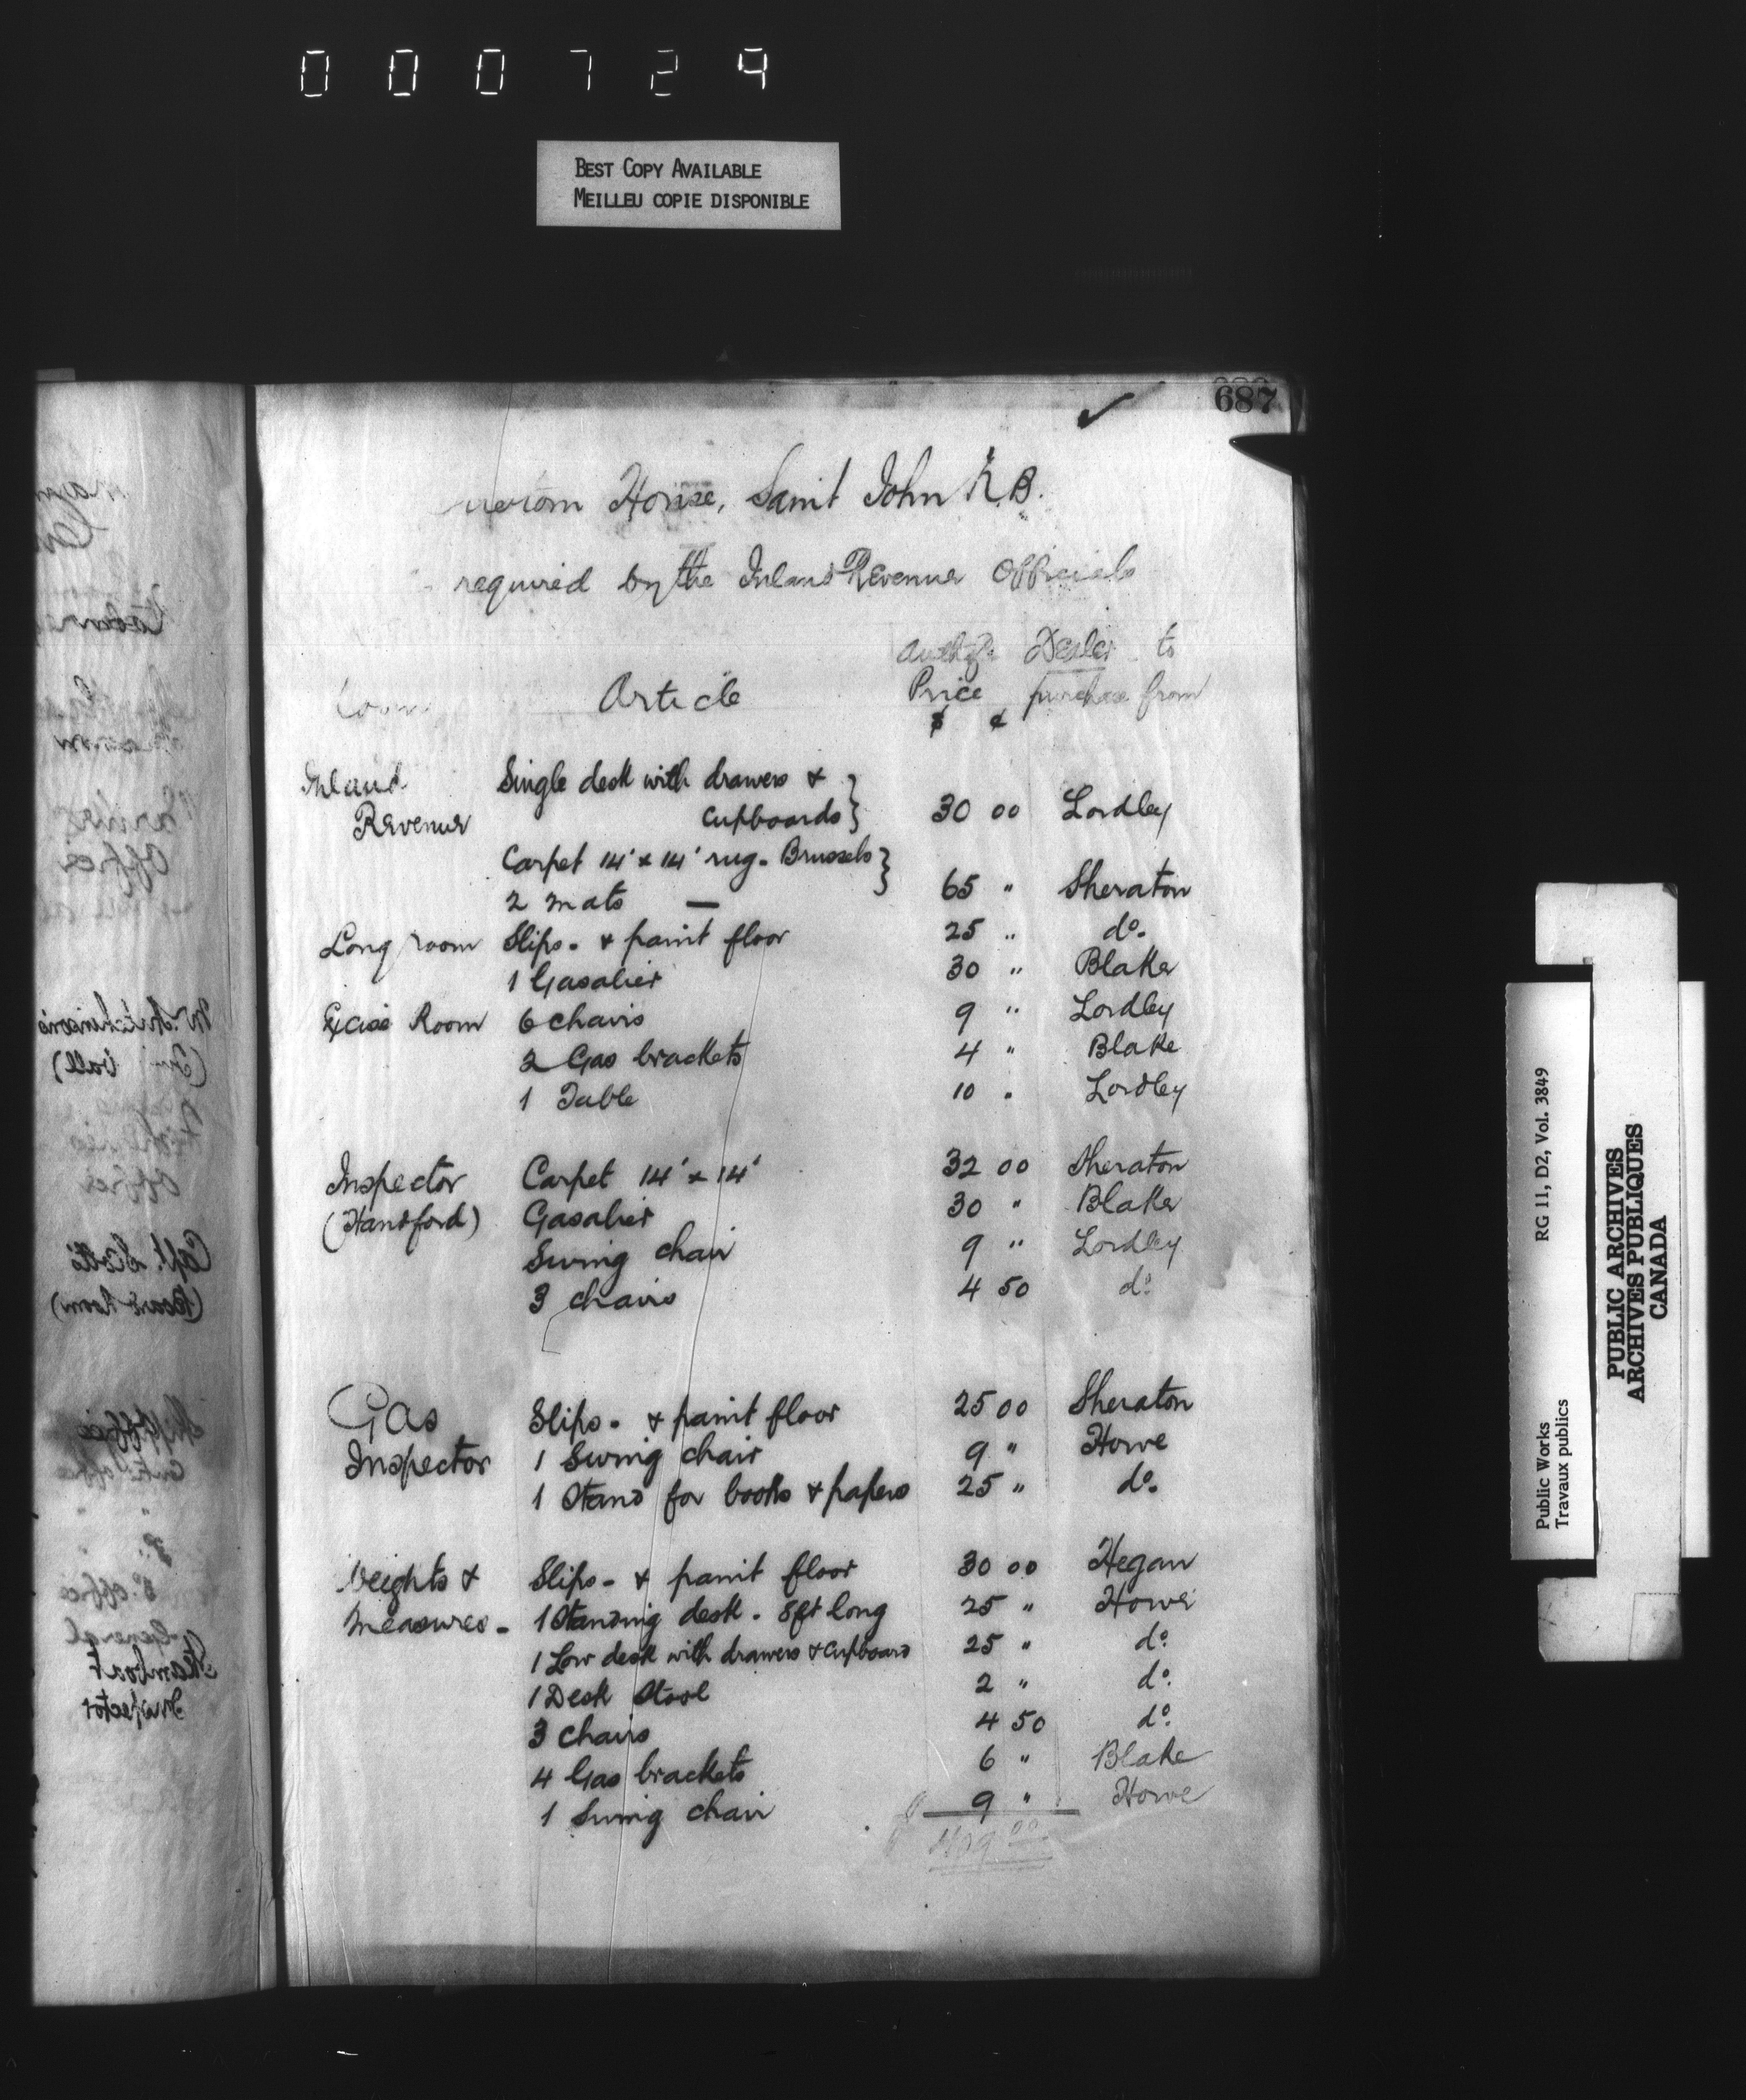 000724
BEST COPY AVAILABLE
MEILLEU COPIE DISPONIBLE
687
House, Saint John N.B.
required by the Inland Revenue Officials
Dealer to
Article Price purchase from
$ ¢
Inland Single desk with drawers &
Revenue Cupboards } 30 00 Lordley
Carpet 14' x 14' rug - Brussels }
2 mats — 65 " Sheraton
Long room Slips - & paint floor 25 " do.
1 Gasalier 30 " Blake
Excise Room 6 chairs 9 " Lordley
2 Gas brackets 4 " Blake
1 Table 10 " Lordley
Inspector Carpet 14' x 14' 32 00 Sheraton
(Handford) Gasalier 30 " Blake
Swing chair 9 " Lordley
3 chairs 4 50 do.
Gas Slips - & paint floor 25 00 Sheraton
Inspector 1 Swing chair 9 " Howe
1 Stand for books & papers 25 " do.
Weights & Slips - & paint floor 30 00 Hegan
Measures - 1 Standing desk - 8ft long 25 " Howe
1 Low desk with drawers & cupboard 25 " do.
1 Desk Stool 2 " do.
3 Chairs 4 50 do.
4 Gas brackets 6 " Blake
1 Swing chair 9 " Howe
$ 409 00
Public Works RG 11, D2, Vol. 3849
Travaux publics
PUBLIC ARCHIVES
ARCHIVES PUBLIQUES
CANADA